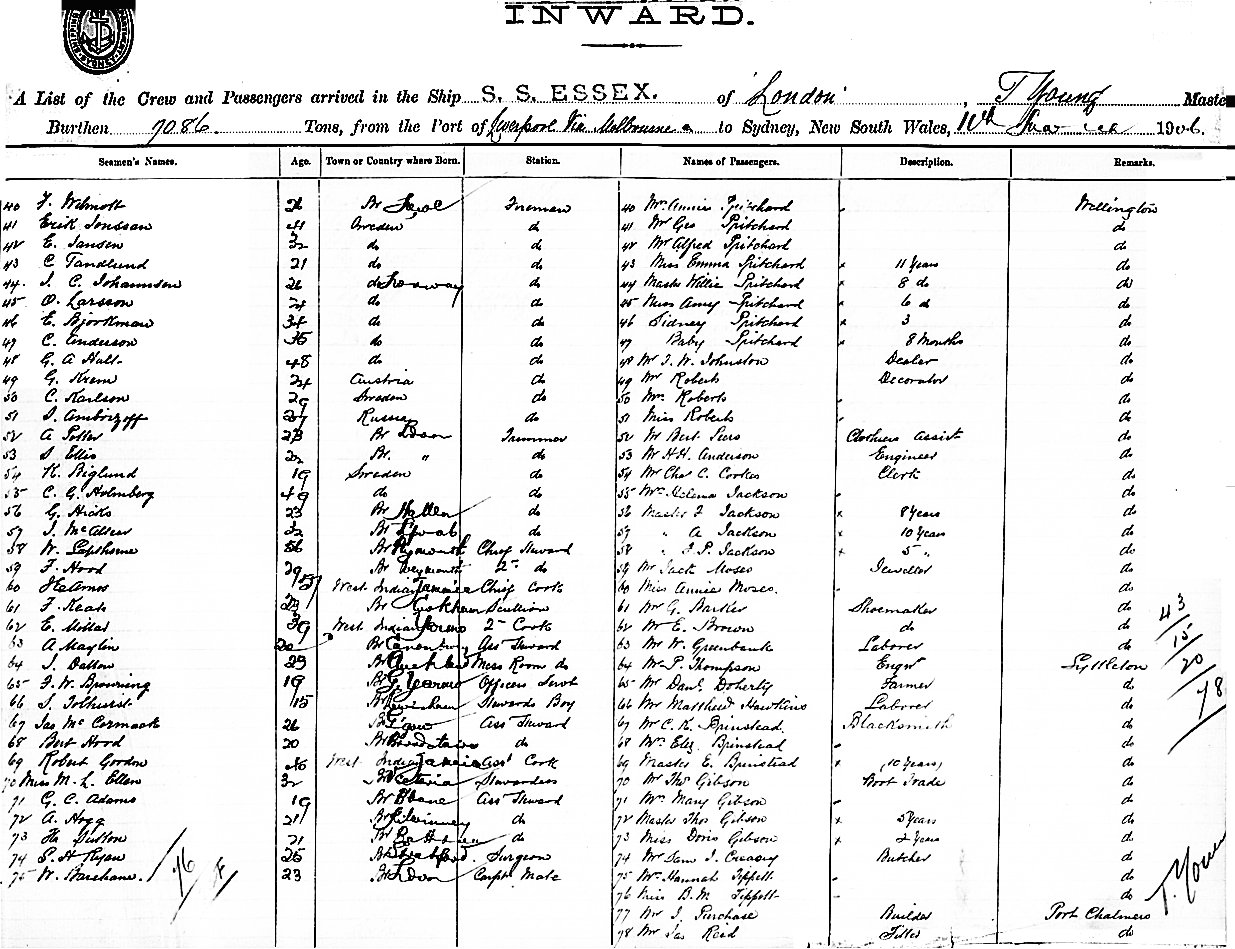 INWARD.
A List of the Crew and Passengers arrived in the Ship S. S. ESSEX. of London, T Young Maste
Burthen 7086. Tons, from the Port of Liverpool Via Melbourne to Sydney, New South Wales, 1906.
Seamen's Names. Age. Town or Country where Born. Station. Names of Passengers. Description. Remarks.
40 F. Wilmott Br Fireman 40 Mrs Annie Pritchard " Wellington
41 Erik Jonsson 41 Sweden do 41 Mr Geo Pritchard do
42 E. Jansen 32 do do 42 Mr Alfred Pritchard do
43 C Tandlund 21 do do 43 Miss Emma Pritchard x 11 Years do
44. J. C. Johannsen 26 do Norway do 44 Master Willie Pritchard x 8 do do
45 O. Larsson 24 do do 45 Miss Amy Pritchard x 6 d do
46 E. Bjorkman 34 do do 46 Sidney Pritchard x 3 do
49 C. Anderson 35 do do 47 Baby Pritchard x 8 Months do
48 G. A Hall 48 do do 48 Mr J. W. Johnston Dealer do
49 G. Krem 24 Austria do 49 Mr Roberts Decorator do
50 C. Karlson 29 Sweden do 50 Mrs Roberts " do
51 27 Russia do 51 Miss Roberts " do
52 A Potter 23 Br Ldon Trimmer 52 Mr Bert Peers Clothiers Assist do
53 S Ellis 22 Br. " do 53 Mr H.H. Anderson Engineer do
54 K. Biglund 19 Sweden do 54 Mr Chas C. Cookes Clerk do
55 C. G. Holmberg 49 do do 55 Mrs Helena Jackson " do
56 G. Hicks 23 Br do 56 Master F Jackson x 8 Years do
57 J. McAteer 32 Br L'pool do 57 " A Jackson x 10 Years do
58 W. Lapthorne 56 Br Plymouth Chief Steward 58 " J. P. Jackson x 5 " do
59 F. Hood 29 Br Weymouth 2nd do 59 Mr Jack Moses Jeweller do
60 J E Amos 57 West Indian Jamaica Chief Cook 60 Miss Annie Moses. " do
61 F. Keats 23 Br Scullion 61 Mr G. Barker Shoemaker do
62 E. Millar 39 West Indian 2nd Cook 62 Mr E. Brown do do
63 A Maylin 20 Br Ass Steward 63 Mr W. Greenbank Laborer do
64 J. Dalton 29 Br Mess Room do 64 Mr P. Thompson Engr Lyttleton
65 F. W. Bowring 19 Br Officers Servt 65 Mr Danl Doherty Farmer do
66 J. Tolhurst 15 Br Stewards Boy 66 Mr Matthew Hawkins Laborer do
67 Jas McCormack 26 Br Ass Steward 67 Mr C. K. Brinstead. Blacksmith do
68 Bert Hood 20 Br do 68 Mrs Eliz. Brinstead " do
69 Robert Gordon 36 West Indian Jamaica Ass Cook 69 Master E. Brinstead x (10 Years) do
70 Miss M. L. Ellen 32 Stewardess 70 Mr Thos Gibson Boot Trade do
71 G. C. Adams 19 Br Ass Steward 71 Mrs Mary Gibson " do
72 A. Hogg 21 Br do 72 Master Thos Gibson x 3 Years do
73 H. Sutton 21 Br do 73 Miss Doris Gibson x 2 Years do
74 S. H Ryan 25 Br Stratford Surgeon 74 Mr Sam J. Creasey Butcher do
75 W. Barchane. 23 Br Ldon Carptr Mate 75 Mrs Hannah Tippett " do
76 Miss B. M. Tippett - do
77 Mr J. Purchase Builder Port Chalmers
78 Mr Jas Reid Fitter do
43
15
20
78
T. Young